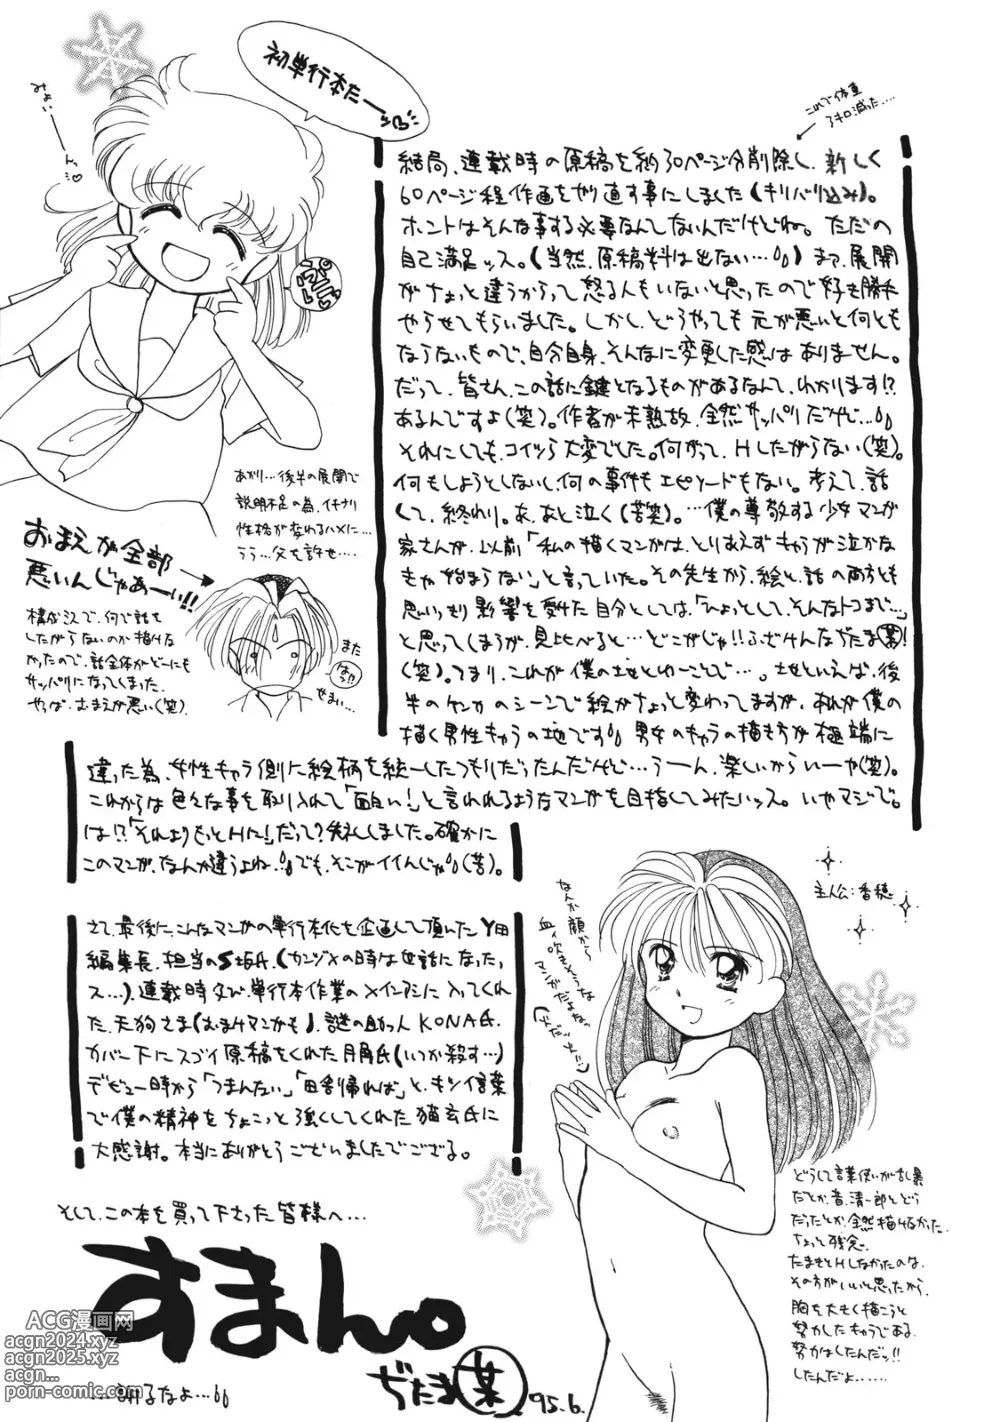 初単行本だー
みょいーーーんっ
ぷにぷに
これで体重
3キロ減った....
結局、連載時の原稿を約30ページ分削除し、新しく
60ページ程作画をやり直す事にしました(キリバリ込み)。
ホントはそんな事する必要なんてないんだけどね。ただの
自己満足ッス。(当然、原稿料は出ない…)まで、展開
がちょっと違うからって怒る人もいないと思ったので好き勝手
やらせてもらいました。しかし、どうやっても元が悪いと何とも
ならないもので、自分自身、そんなに変更した感はありません。
だって、皆さん、この話に鍵となるものがあるなんて、わかります!?
あるんですよ(笑)。作者が未熟故、全然サッパリだけど…
それにしても、コイツら大変でした。何がって、Hしたがらない(笑)。
何もしようとしないし、何の事件もエピソードもない。考えて、話
して、終わり。あ、あと泣く(苦笑)。…僕の尊敬する少女マンガ
家さんが、以前「私の描くマンガは、とりあえずキャラが泣かな
きゃ始まらない」と言っていた。その先生から、絵と、話の両方とも
思いっきり影響を受けた自分としては、「ひょっとして、そんなトコまで…」
と思ってしまうが、見比べると…どこがじゃ!!ふざけんなぢたま某!
(笑)。つまり、これが僕の地とゆーことで…。地といえば、後
半のケンカのシーンで絵がちょっと変わってますが、あれが僕の
描く男性キャラの地です 男女のキャラの描き方が極端に
違った為、女性キャラ側に絵柄を統一したつもりだったんだけど…うーん、楽しいからいーや(笑)。
これからは色々な事を取り入れて「面白い!」と言われるようなマンガを目指してみたいッス。いやマジで。
は!?「それよりもっとHに!」だって?失礼しました。確かに
このマンガ、なんか違うよね、でも、そこがイイんじゃ(苦)。
あがり…後半の展開で
説明不足の為、イキナリ
性格が変わるハメに…
うう…父を許せ…
おまえが全部
悪いんじゃあーい!!
構成ミスで、何で話を
したがらないのか描けな
かったので、話全体がどーにも
サッパリになってしまった。
やっぱ、おまえが悪い(笑)。
また
はちゃ
せまい…
さて、最後に、こんなマンガの単行本化を企画して頂いたY田
編集長、担当のS坂氏、(カンヅメの時は世話になったッ
ス…)、連載時及び、単行本作業のメインアシに入ってくれ
た、天狗さま(おまけマンガも)、謎の助っ人KONA氏、
カバー下にスゴイ原稿をくれた月角氏(いつか殺す…)
デビュー時から「つまんない」「田舎帰れば」と、キツイ言葉
で僕の精神をちょこっと強くしてくれた猫玄氏に
大感謝。本当にありがとうございましたでござる。
主人公:香穂
なんか顔から
血ィ吹きそうな
マンガだよなっ
どうして言葉使いが乱暴
だとか、昔、清一郎とどう
だったとか、全然描けなかった。
ちょっと残念。
たまきとHしなかったのは、
その方がいいと思ったから。
胸を大きく描こうと
努力したキャラである。
努力はしたんだッ!!
したんだよ......
そして、この本を買って下さった皆様へ…
すまん。
…謝るなよ…
ぢたま某 '95.6.
ACG漫画网
acgn2024.xyz
acgn2025.xyz
acgn...
porn-comic.com